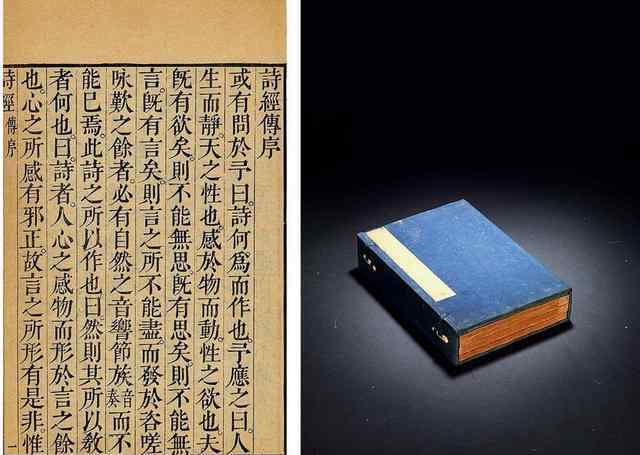 詩經傳序
或有問於予曰。詩何爲而作也。予應之曰。人
生而靜。天之性也。感於物而動。性之欲也。夫
既有欲矣。則不能無思。既有思矣。則不能無
言。既有言矣。則言之所不能盡。而發於咨嗟
咏歎之餘者。必有自然之音響節族音奏而不
能已焉。此詩之所以作也曰然則其所以敎
者何也。曰詩者。人心之感物而形於言之餘
也。心之所感有邪正。故言之所形有是非。惟
詩經 傳序 一